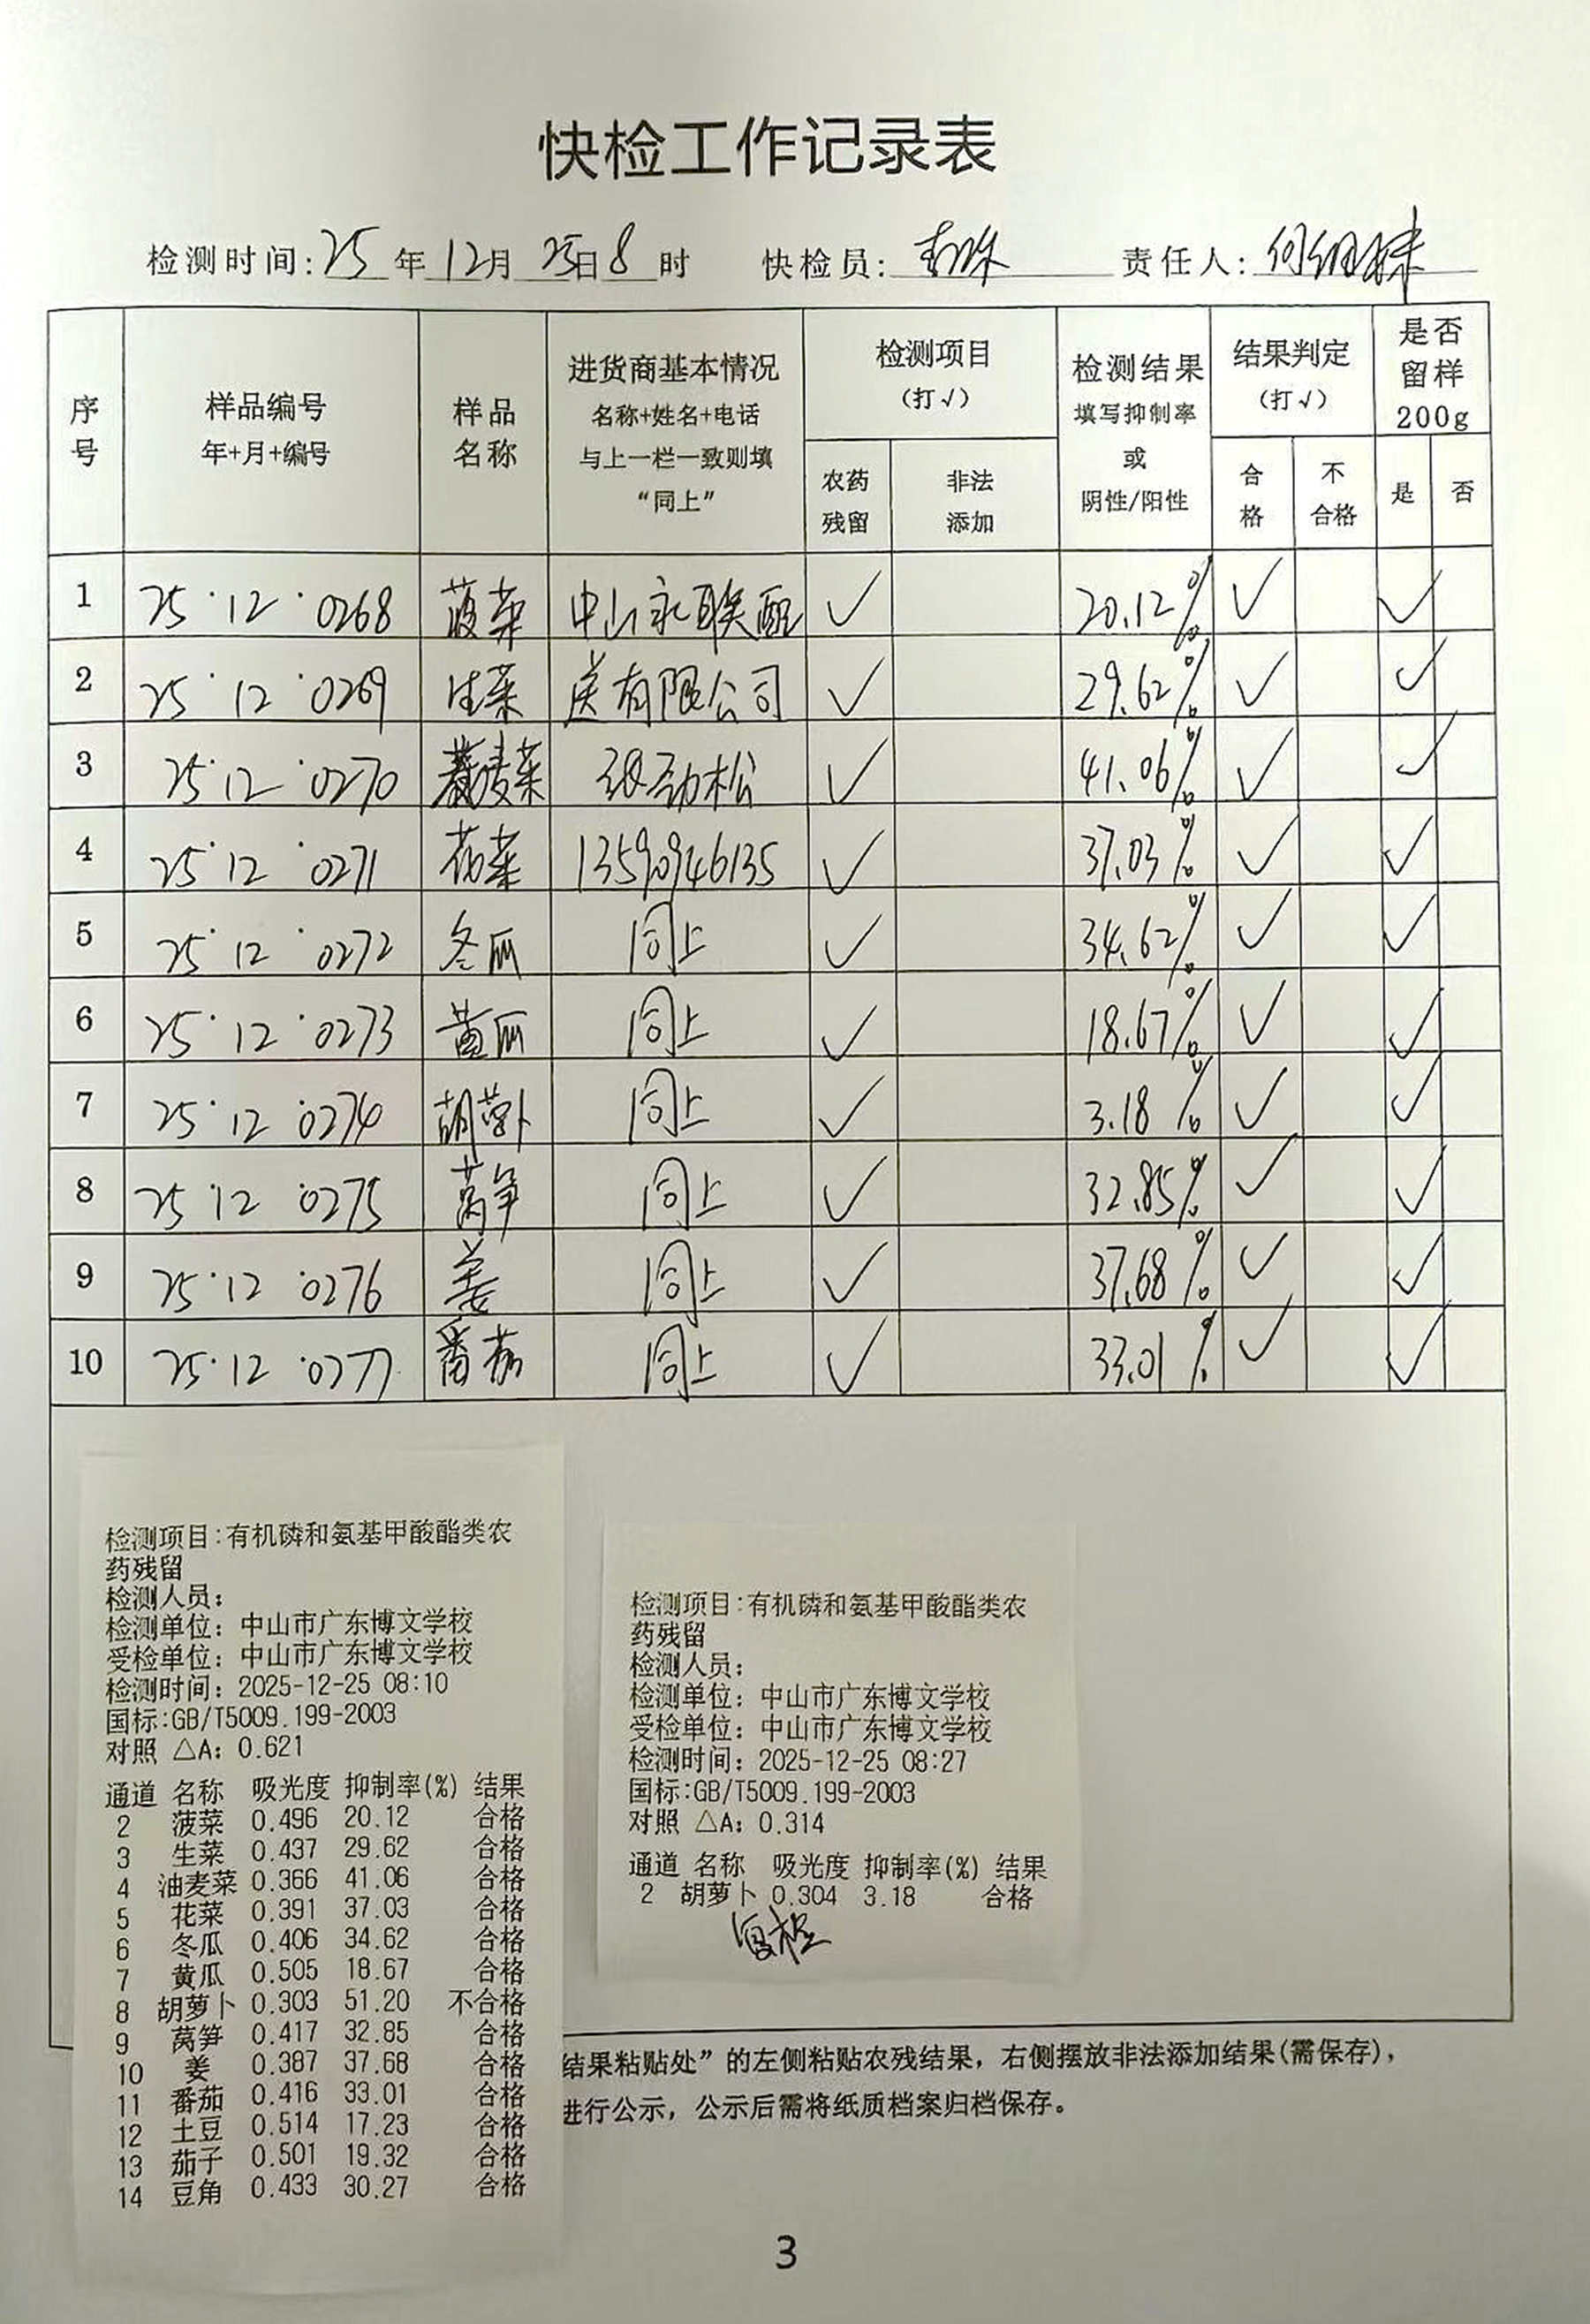 快检工作记录表
检测时间:25年12月25日8时 快检员: 责任人:何细妹
序号 样品编号 年+月+编号 样品名称 进货商基本情况 名称+姓名+电话 与上一栏一致则填“同上” 检测项目(打√) 农药残留 非法添加 检测结果 填写抑制率或阴性/阳性 结果判定(打√) 合格 不合格 是否留样200g 是 否
1 25·12·0268 菠菜 中山永联配 √ 20.12% √ √
2 25·12·0269 生菜 送有限公司 √ 29.62% √ √
3 25·12·0270 麦菜 劲松 √ 41.06% √ √
4 25·12·0271 花菜 13590946135 √ 37.03% √ √
5 25·12·0272 冬瓜 同上 √ 34.62% √ √
6 25·12·0273 黄瓜 同上 √ 18.67% √ √
7 25·12·0274 胡萝卜 同上 √ 3.18% √ √
8 25·12·0275 莴笋 同上 √ 32.85% √ √
9 25·12·0276 姜 同上 √ 37.68% √ √
10 25·12·0277 番茄 同上 √ 33.01% √ √
检测项目:有机磷和氨基甲酸酯类农
药残留
检测人员:
检测单位: 中山市广东博文学校
受检单位: 中山市广东博文学校
检测时间: 2025-12-25 08:10
国标:GB/T5009.199-2003
对照 △A: 0.621
通道 名称 吸光度 抑制率(%) 结果
2 菠菜 0.496 20.12 合格
3 生菜 0.437 29.62 合格
4 油麦菜 0.366 41.06 合格
5 花菜 0.391 37.03 合格
6 冬瓜 0.406 34.62 合格
7 黄瓜 0.505 18.67 合格
8 胡萝卜 0.303 51.20 不合格
9 莴笋 0.417 32.85 合格
10 姜 0.387 37.68 合格
11 番茄 0.416 33.01 合格
12 土豆 0.514 17.23 合格
13 茄子 0.501 19.32 合格
14 豆角 0.433 30.27 合格
检测项目:有机磷和氨基甲酸酯类农
药残留
检测人员:
检测单位: 中山市广东博文学校
受检单位: 中山市广东博文学校
检测时间: 2025-12-25 08:27
国标:GB/T5009.199-2003
对照 △A: 0.314
通道 名称 吸光度 抑制率(%) 结果
2 胡萝卜 0.304 3.18 合格
复检
结果粘贴处”的左侧粘贴农残结果，右侧摆放非法添加结果(需保存)，
进行公示，公示后需将纸质档案归档保存。
3